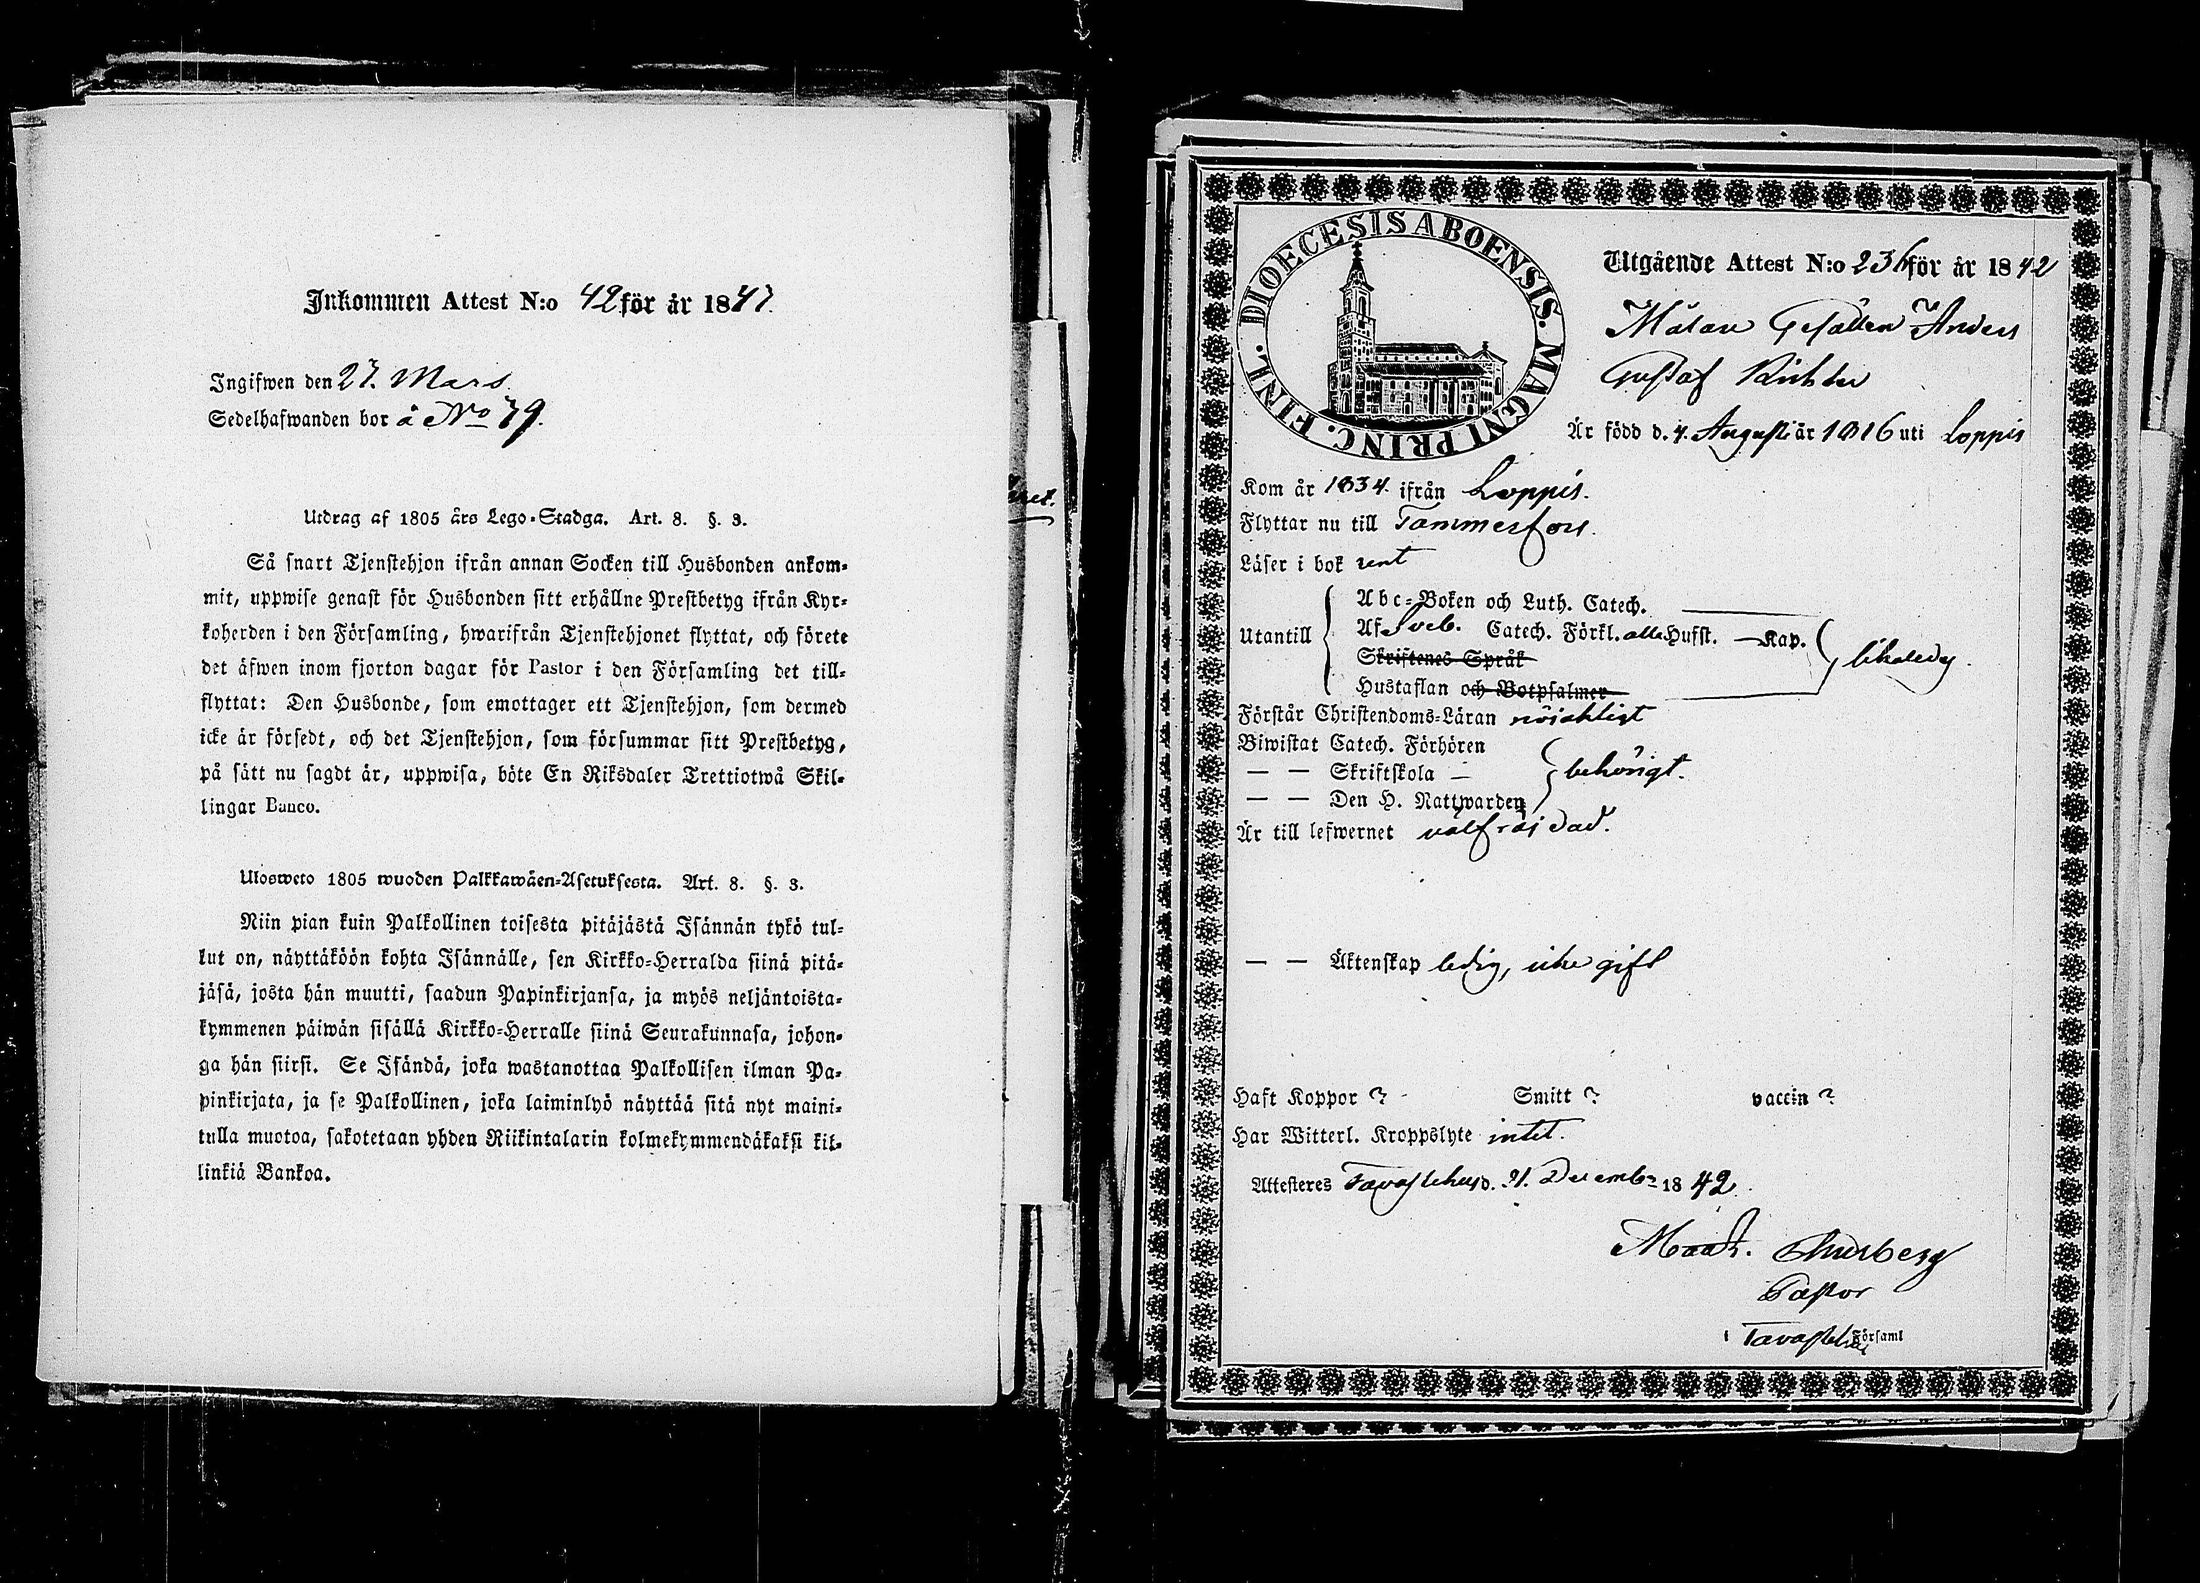 Inkommen Attest N:o 42 för år 1847.
Ingifwen den 27. Mars.
Sedelhafwanden bor å No 79.
Utdrag af 1805 års Lego-Stadga. Art. 8. §. 3.
Så snart Tjenstehjon ifrån annan Socken till Husbonden ankom-
mit, uppwise genast för Husbonden sitt erhållne Prestbetyg ifrån Kyr-
koherden i den Församling, hwarifrån Tjenstehjonet flyttat, och förete
det äfwen inom fjorton dagar för Pastor i den Församling det till-
flyttat: Den Husbonde, som emottager ett Tjenstehjon, som dermed
icke är försedt, och det Tjenstehjon, som försummar sitt Prestbetyg,
på sätt nu sagdt är, uppwisa, böte En Riksdaler Trettiotwå Skil-
lingar Banco.
Ulosweto 1805 wuoden Palkkawäen-Asetuksesta. Art. 8. §. 3.
Niin pian kuin Palkollinen toisesta pitäjästä Isännän tykö tul-
lut on, näyttäköön kohta Isännälle, sen Kirkko-Herralda siinä pitä-
jäsä, josta hän muutti, saadun Papinkirjansa, ja myös neljäntoista-
kymmenen päiwän sisällä Kirkko-Herralle siinä Seurakunnasa, johon-
ga hän siirsi. Se Isändä, joka wastanottaa Palkollisen ilman Pa-
pinkirjata, ja se Palkollinen, joka laiminlyö näyttää sitä nyt maini-
tulla muotoa, sakotetaan yhden Riikintalarin kolmekymmendäkaksi kil-
linkiä Bankoa.
DIOECESIS ABOENSIS. MAGNI PRINC. FINL.
Utgående Attest N:o 236 för år 1842
Målare Gesällen Anders
Gustaf Richter
Är född d. 4. Augusti år 1816 uti Loppis
Kom år 1834. ifrån Loppis.
Flyttar nu till Tammerfors.
Läser i bok rent
Utantill
Abc-Boken och Luth. Catech.
Af Sveb. Catech. Förkl. alla Hufst. — Kap.
Skriftenes Språk
Hustaflan och Botpsalmer
likaledes.
Förstår Christendoms-Läran nöjaktigt
Biwistat Catech. Förhören
— — Skriftskola —
— — Den H. Nattwarden
behörigt.
Är till lefwernet välfräjdad.
— — Äktenskap ledig, icke gift
Haft Koppor ? Smitt ? vaccin ?
Har Witterl. Kroppslyte intet.
Attesteres Tavastehus d. 21. Decembr 1842.
Churberg
Pastor
i Tavastehus Församl